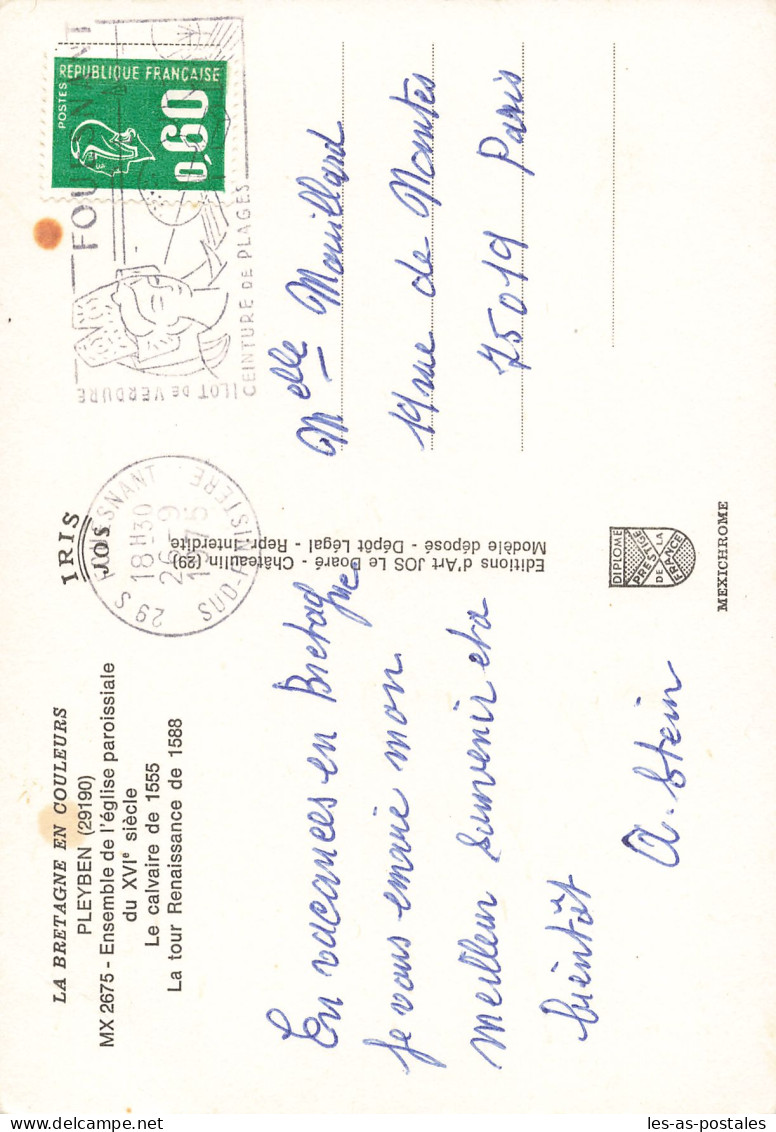 LA BRETAGNE EN COULEURS
PLEYBEN (29190)
MX 2675 - Ensemble de l'église paroissiale
du XVIe siècle
Le calvaire de 1555
La tour Renaissance de 1588
IRIS
JOS
En vacances en Bretagne
je vous envoie mon
meilleur souvenir et a
bientôt
A. Stein
Editions d'Art JOS Le Doaré - Châteaulin (29)
Modèle déposé - Dépôt Légal - Repr. Interdite
DIPLOME
PRESTIGE
DE LA
FRANCE
MEXICHROME
29 S FOUESNANT
18 H 30
26 - 9
1975
SUD-FINISTERE
ILOT DE VERDURE
CEINTURE DE PLAGES
POSTES
REPUBLIQUE FRANÇAISE
0,60
Melle Mouillard
19 rue de Nantes
75019 Paris
les-as-postales